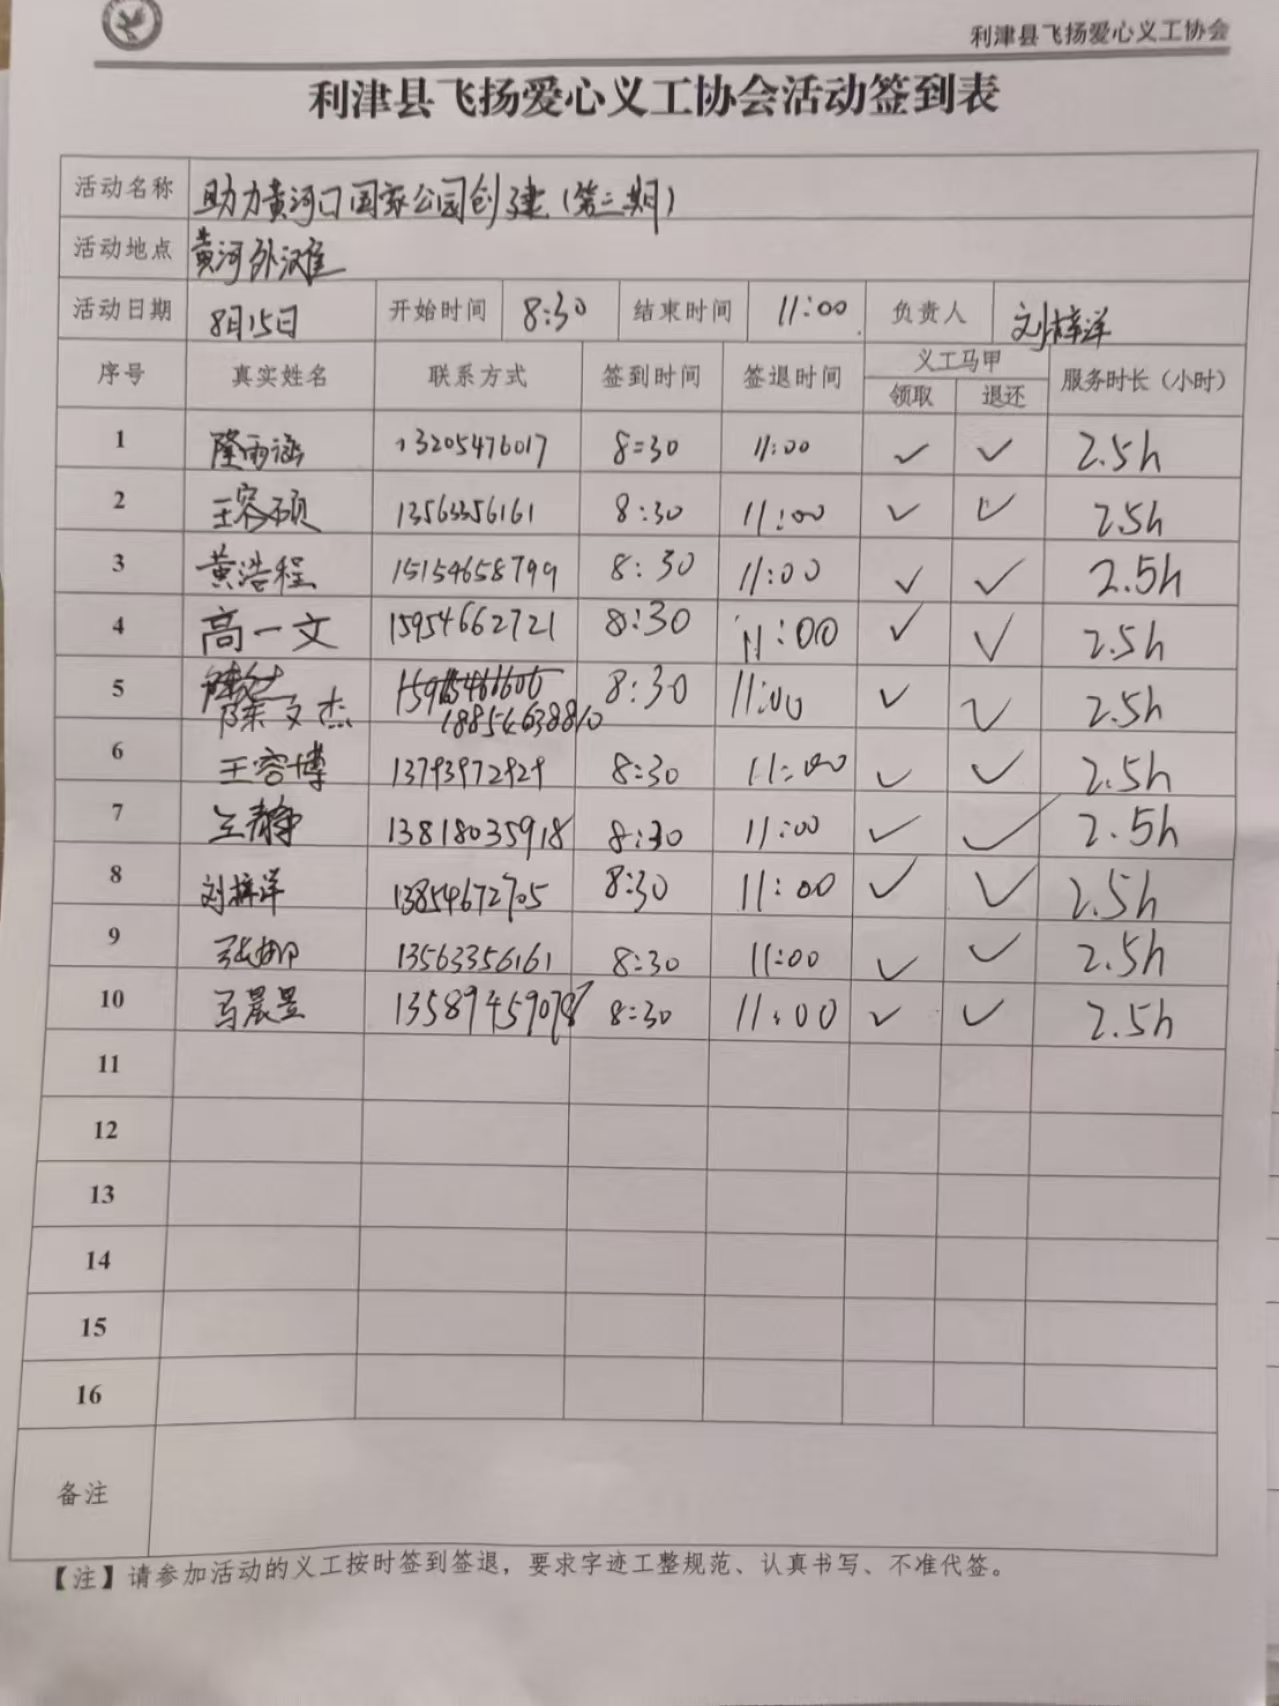 利津县飞扬爱心义工协会
利津县飞扬爱心义工协会活动签到表
活动名称 助力黄河口国家公园创建（第三期）
活动地点 黄河外滩
活动日期 8月15日 开始时间 8:30 结束时间 11:00 负责人 刘梓洋
序号 真实姓名 联系方式 签到时间 签退时间 义工马甲 服务时长（小时）
领取 退还
1 隆雨涵 13205476017 8:30 11:00 ✓ ✓ 2.5h
2 王容硕 13563356161 8:30 11:00 ✓ ✓ 2.5h
3 黄浩程 15154658799 8:30 11:00 ✓ ✓ 2.5h
4 高一文 15954662721 8:30 11:00 ✓ ✓ 2.5h
5 8:30 11:00 ✓ ✓ 2.5h
陈文杰 18854638810
6 王容博 13793972929 8:30 11:00 ✓ ✓ 2.5h
7 兰静 13818035918 8:30 11:00 ✓ ✓ 2.5h
8 刘梓洋 13854672705 8:30 11:00 ✓ ✓ 2.5h
9 张娜 13563356161 8:30 11:00 ✓ ✓ 2.5h
10 马晨昱 8:30 11:00 ✓ ✓ 2.5h
11
12
13
14
15
16
备注
【注】请参加活动的义工按时签到签退，要求字迹工整规范、认真书写、不准代签。